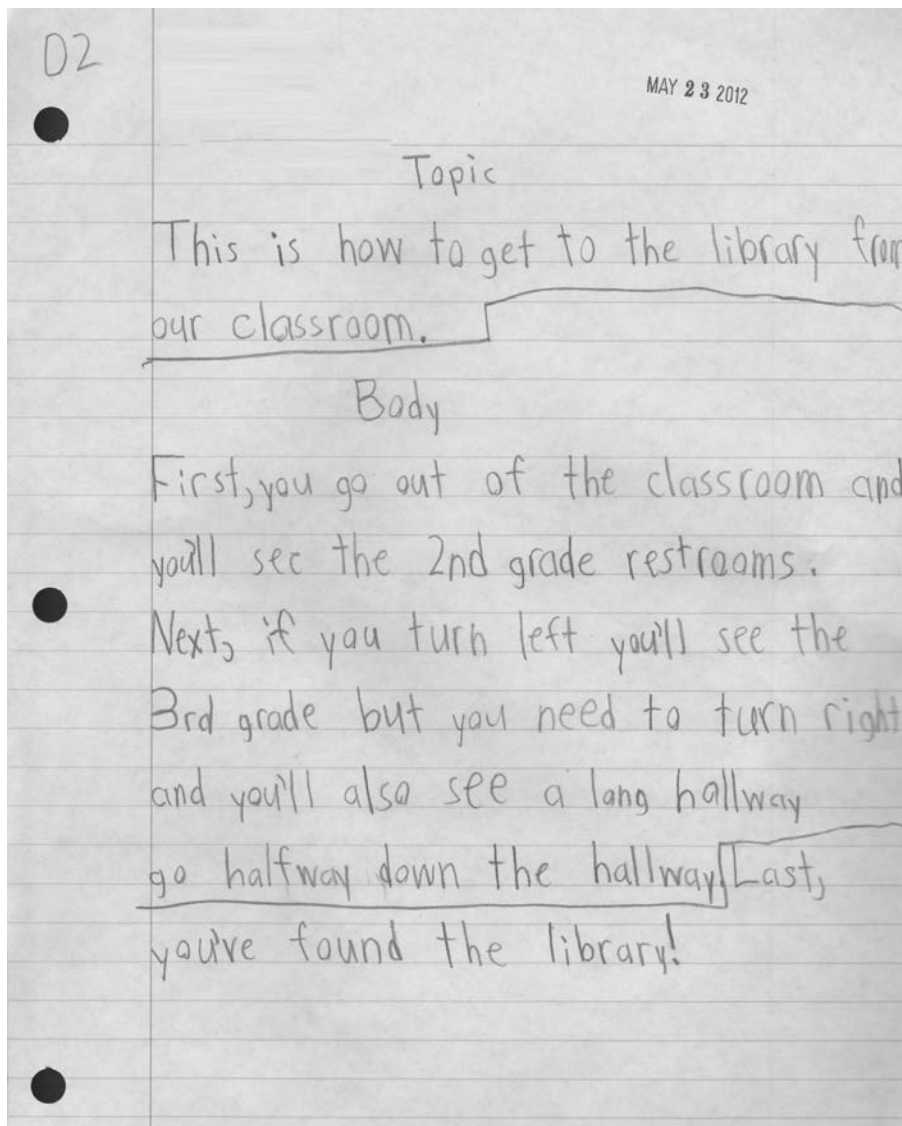 D2
MAY 23 2012
Topic
This is how to get to the library from
our classroom.
Body
First, you go out of the classroom and
you'll see the 2nd grade restrooms.
Next, if you turn left you'll see the
3rd grade but you need to turn right
and you'll also see a long hallway
go halfway down the hallway. Last,
you've found the library!